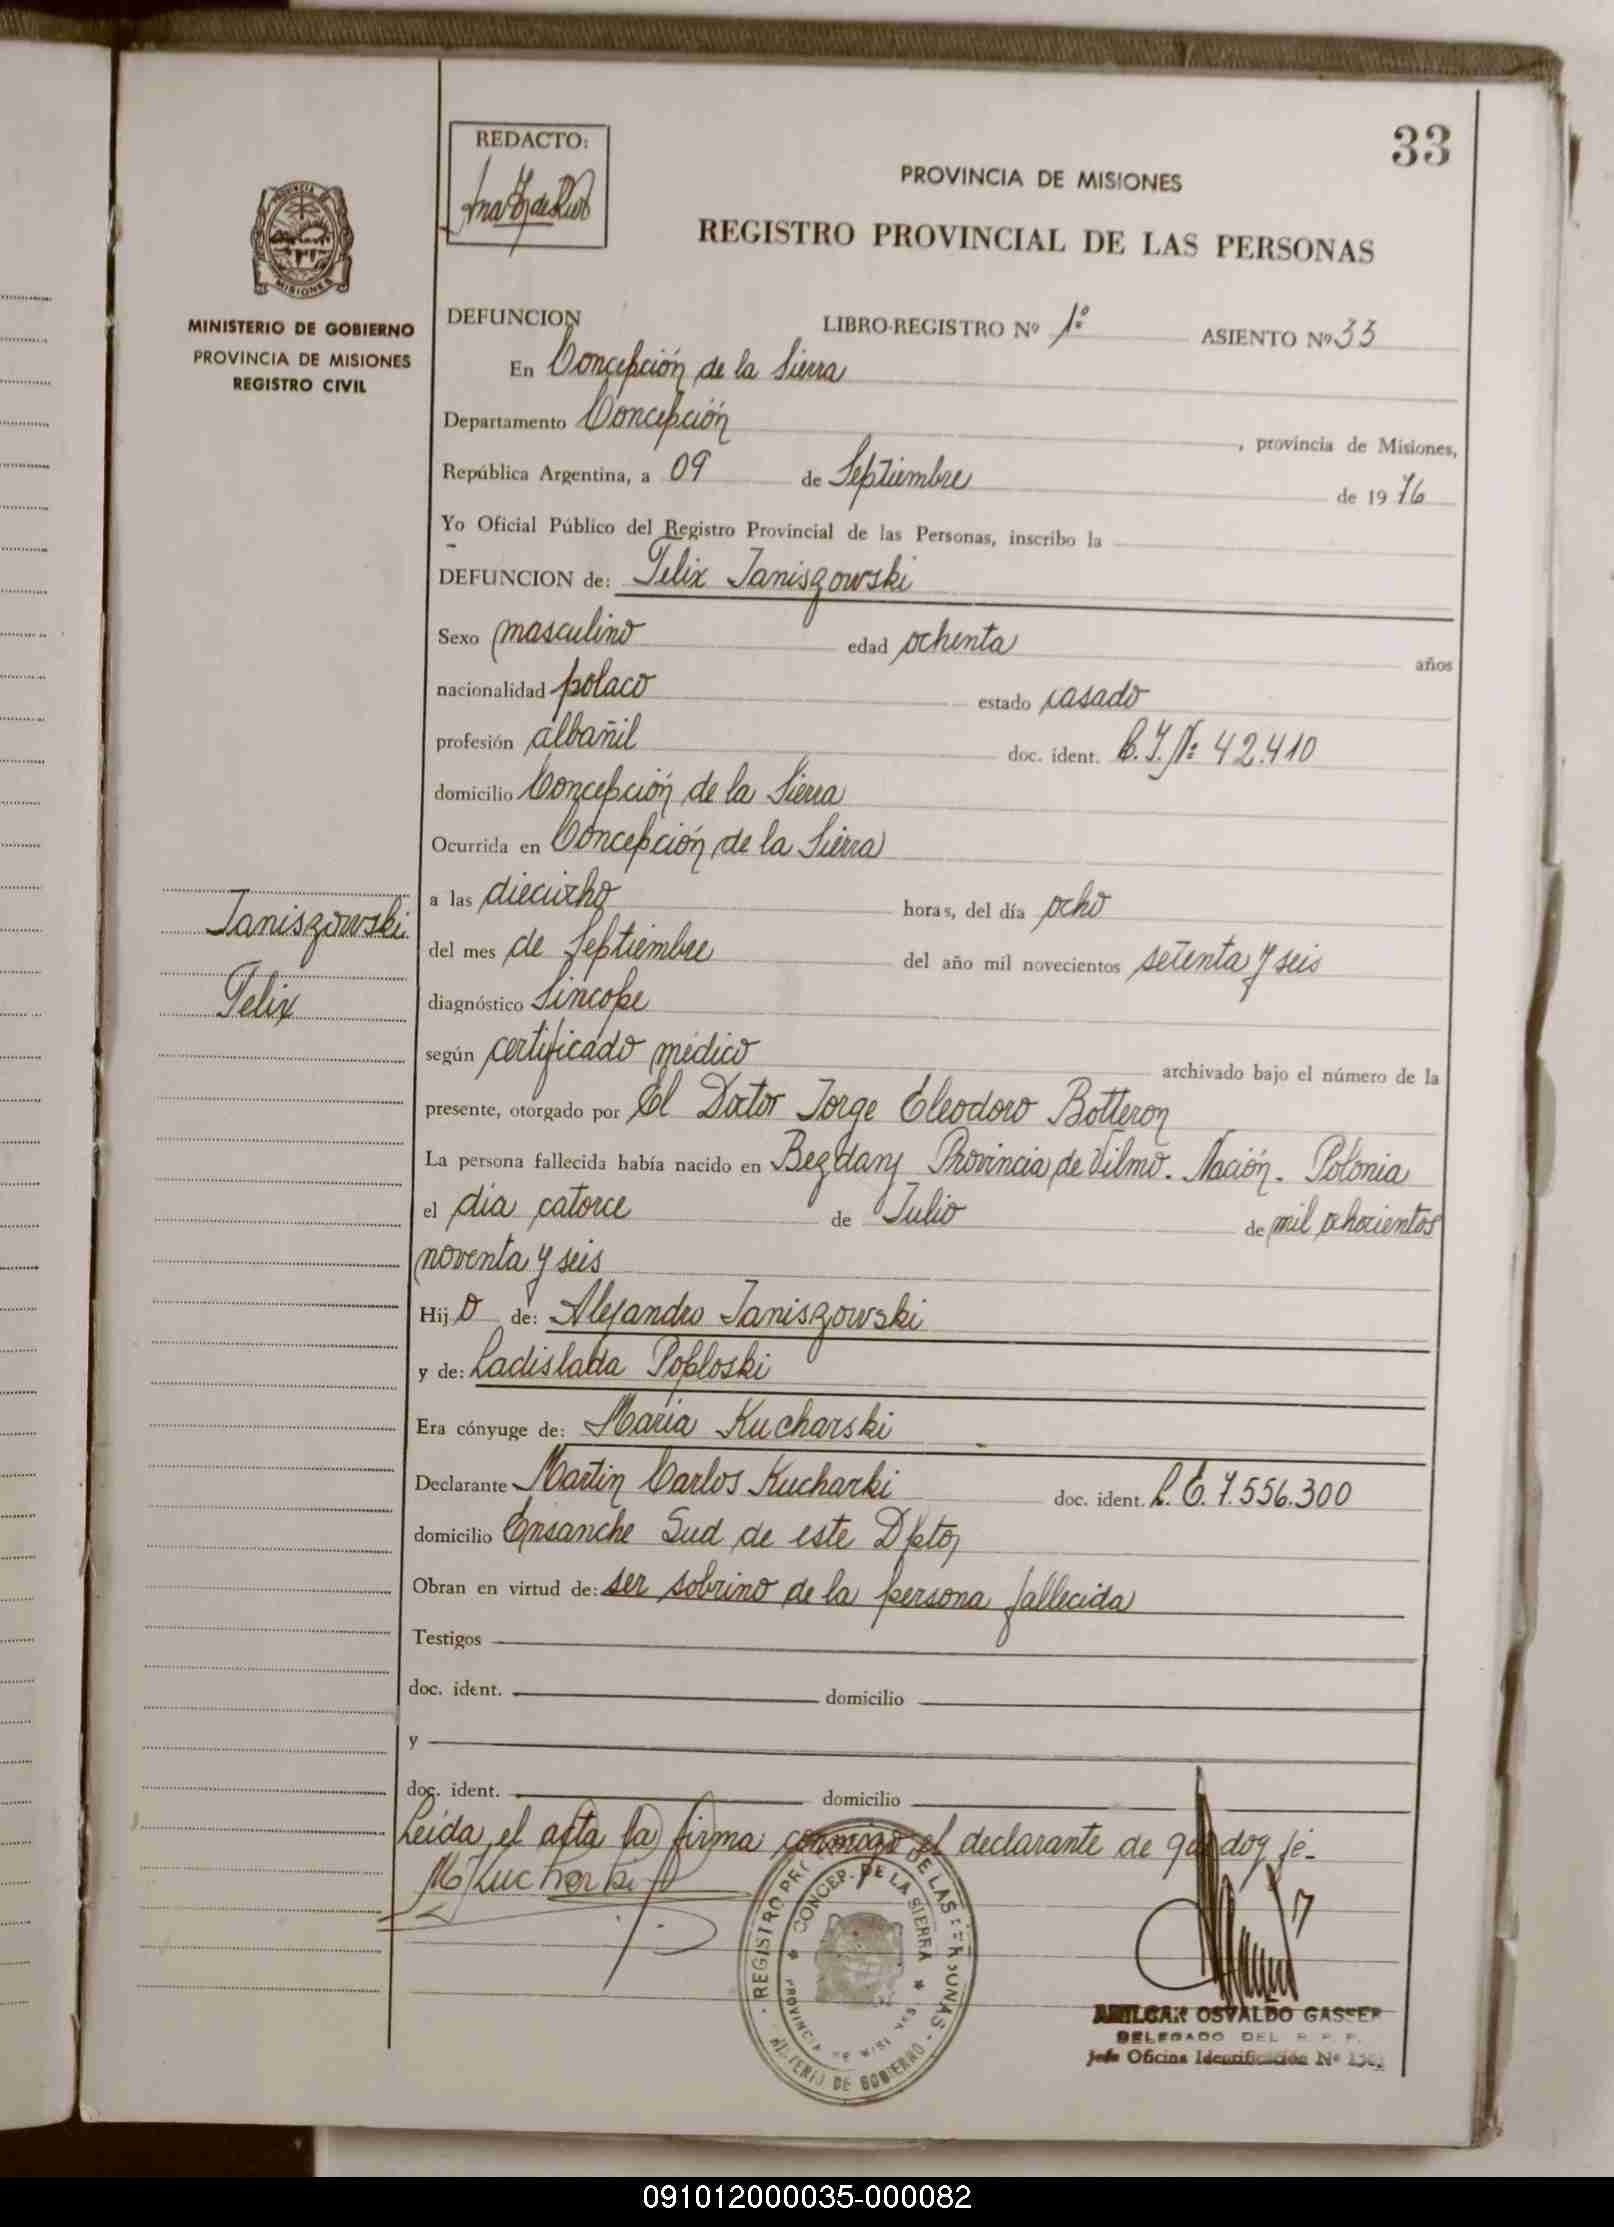 33
REDACTO:
PROVINCIA DE MISIONES
REGISTRO PROVINCIAL DE LAS PERSONAS
PROVINCIA
MISIONES
MINISTERIO DE GOBIERNO
PROVINCIA DE MISIONES
REGISTRO CIVIL
DEFUNCION LIBRO-REGISTRO Nº 1º ASIENTO Nº 33
En Concepción de la Sierra
Departamento Concepción, provincia de Misiones,
República Argentina, a 09 de Septiembre de 1976
Yo Oficial Público del Registro Provincial de las Personas, inscribo la
DEFUNCION de: Felix Janiszowski
Sexo masculino edad ochenta años
nacionalidad polaco estado casado
profesión albañil doc. ident. C.I. Nº 42.410
domicilio Concepción de la Sierra
Ocurrida en Concepción de la Sierra
a las dieciocho horas, del día ocho
Janiszowski
del mes de Septiembre del año mil novecientos setenta y seis
Felix
diagnóstico Sincope
según certificado médico archivado bajo el número de la
presente, otorgado por El Doctor Jorge Eleodoro Botteron
La persona fallecida había nacido en Bezdany Provincia de Vilmo. Nación. Polonia
el dia catorce de Julio de mil ochocientos
noventa y seis
Hijo de: Alejandro Janiszowski
y de: Ladislada Poploski
Era cónyuge de: Maria Kucharski
Declarante Martin Carlos Kucharki doc. ident. L.E. 7.556.300
domicilio Ensanche Sud de este Dpto
Obran en virtud de: ser sobrino de la persona fallecida
Testigos
doc. ident. domicilio
y
doc. ident. domicilio
Leída el acta la firma conmigo el declarante de que doy fé.
REGISTRO PROVINCIAL DE LAS PERSONAS
CONCEP. DE LA SIERRA
PROVINCIA DE MISIONES
MINISTERIO DE GOBIERNO
AMILCAR OSVALDO GASSER
DELEGADO DEL R. P. P.
Jefe Oficina Identificación Nº
091012000035-000082